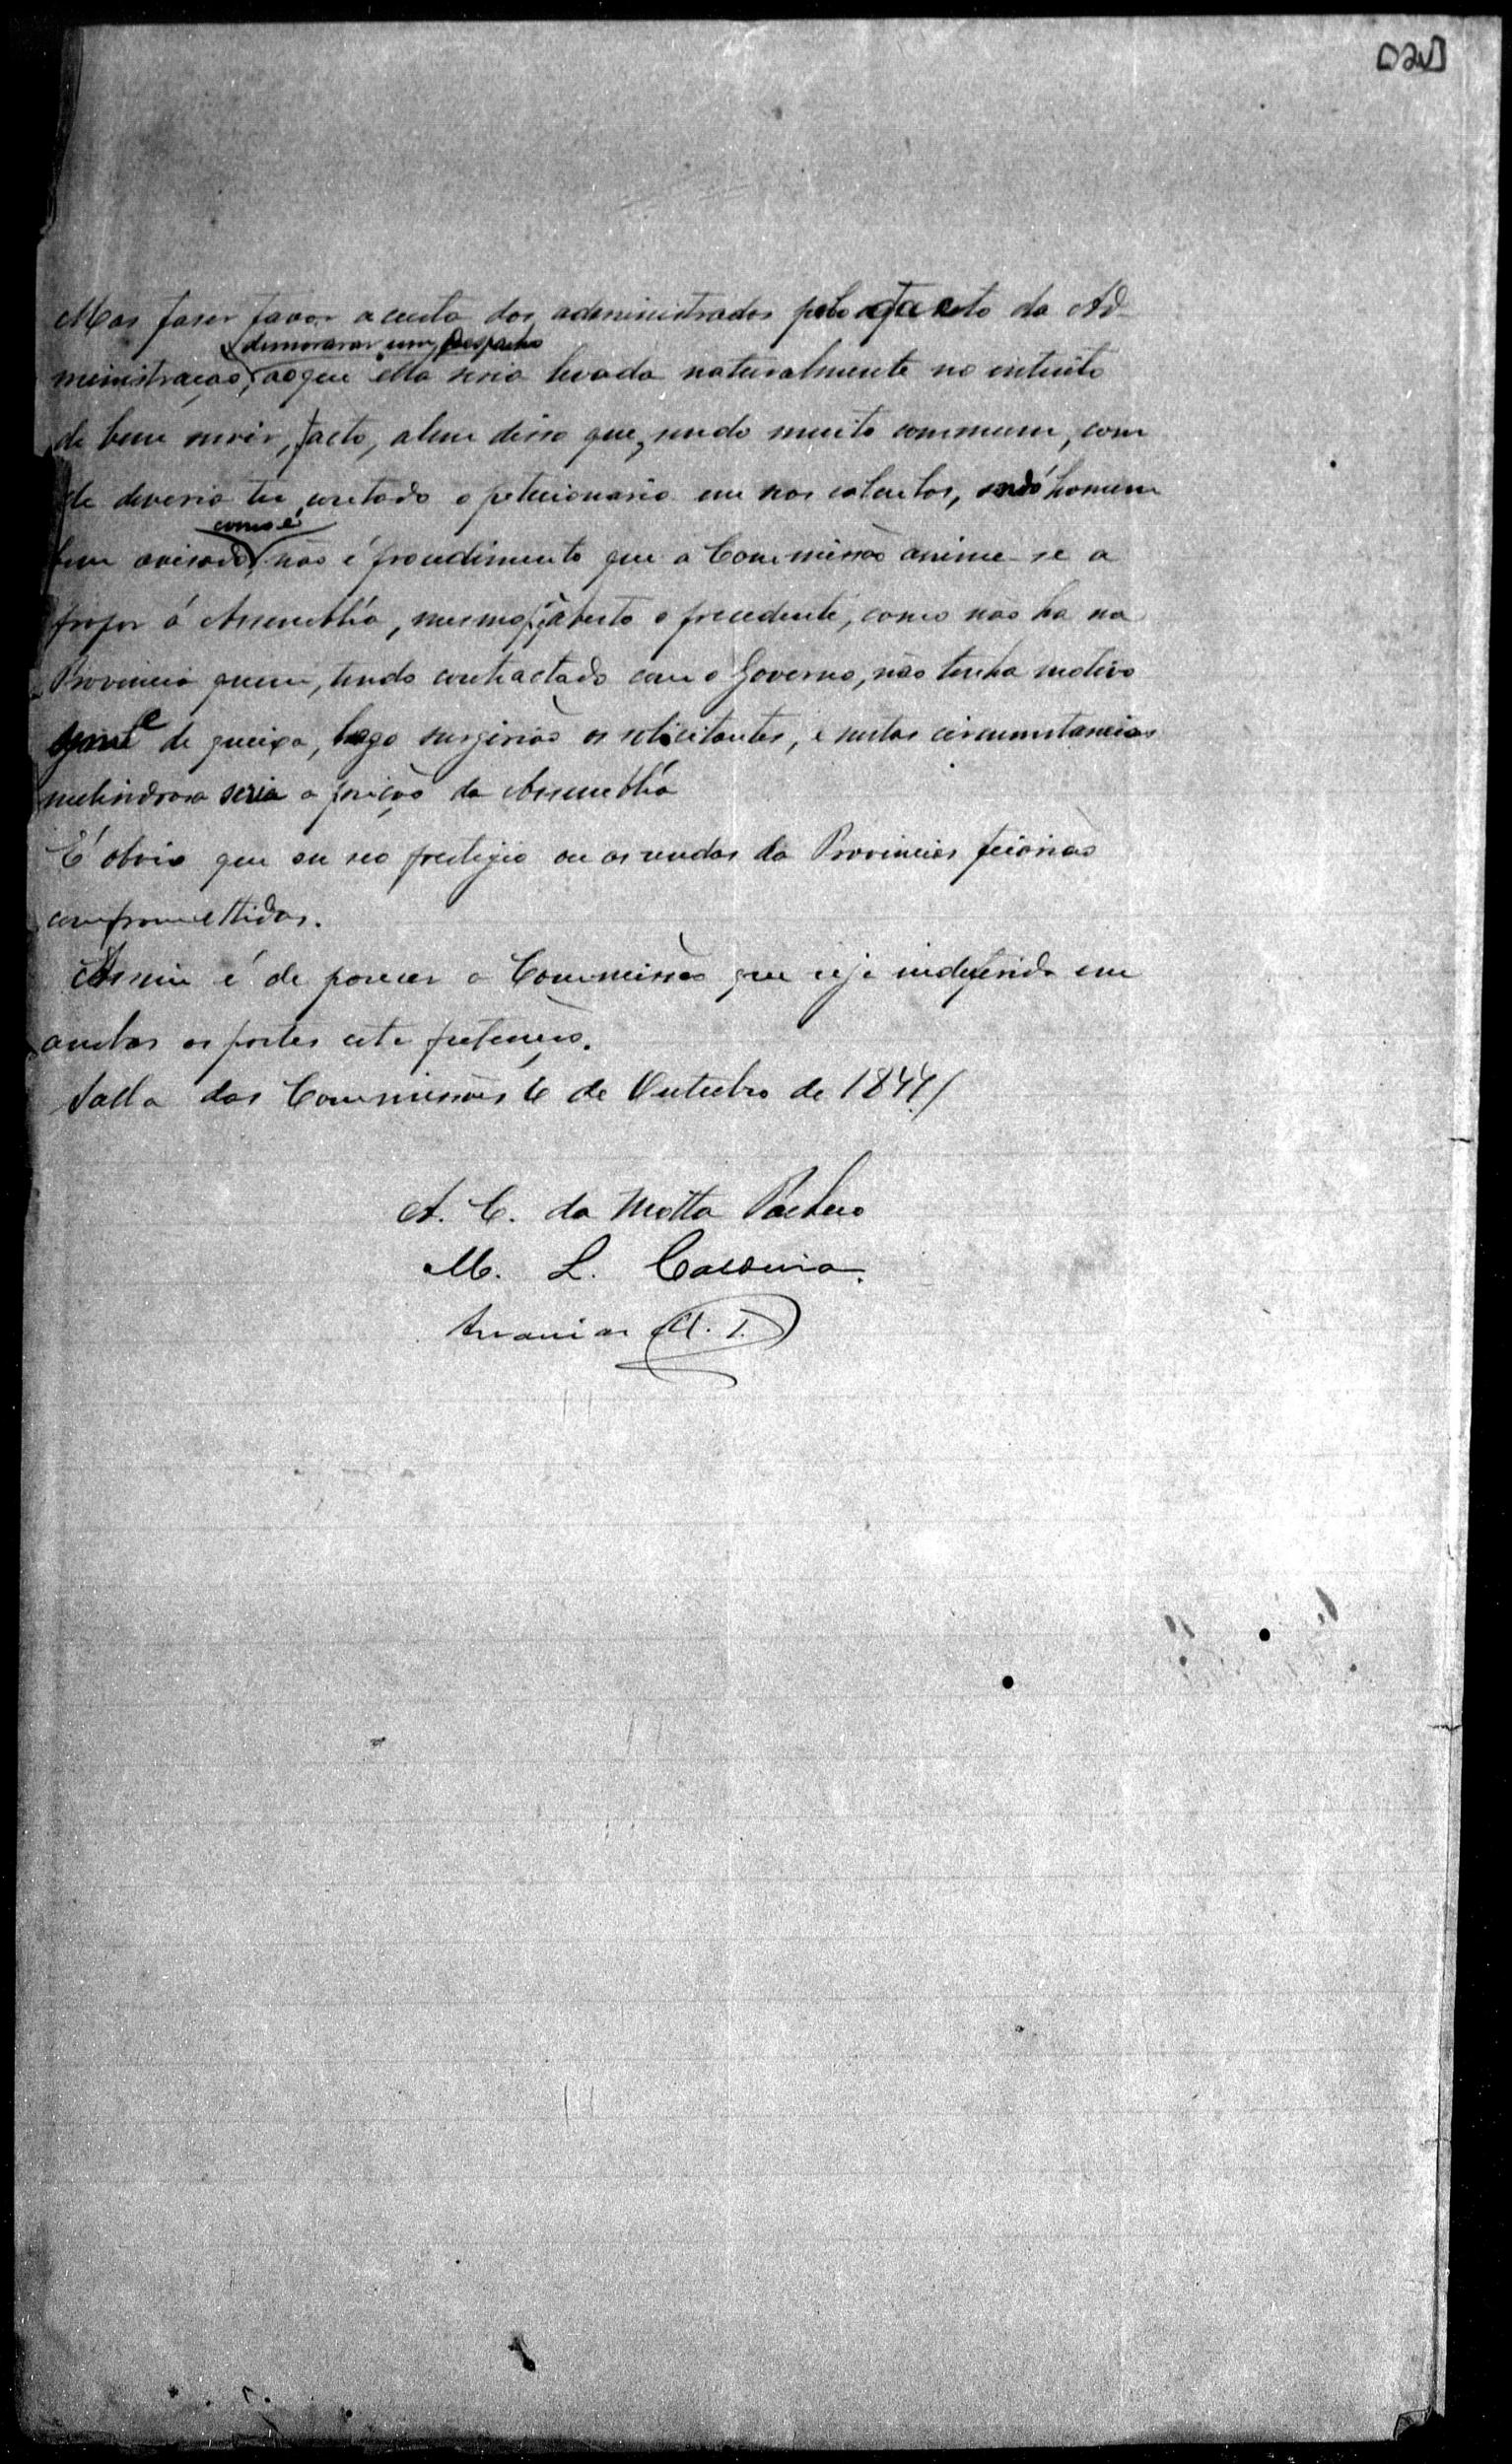 [02v]
Mas faser favor a custa dos administrados pelo facto da Ad-
demorarar um despacho
ministração, ao que ella seria levada naturalmente no intuito
de bem servir, facto, alem disso que, sendo muito commum, com
elle deveria ter contado o peticionario em nos calculos, sendo homem
como é
bem avisado, não é procedimento que a Commissão anime-se a
propor á Assembléa, mesmo pq. aberto o precedente, como não ha na
Provincia quem, tendo contractado com o Governo, não tenha motivo
de queixa, logo surgirião os solicitantes, e nestas circumstancias
melindrosa seria a posição da Assembléa
É obvio que ou seo prestigio ou as rendas da Provincias ficarião
compromettidas.
Assim é de parecer a Commissão que seja indeferida em
ambas as partes esta pretenção.
Salla das Commissões 6 de Outubro de 1877/
A. C. da Motta Pacheco
M. L.